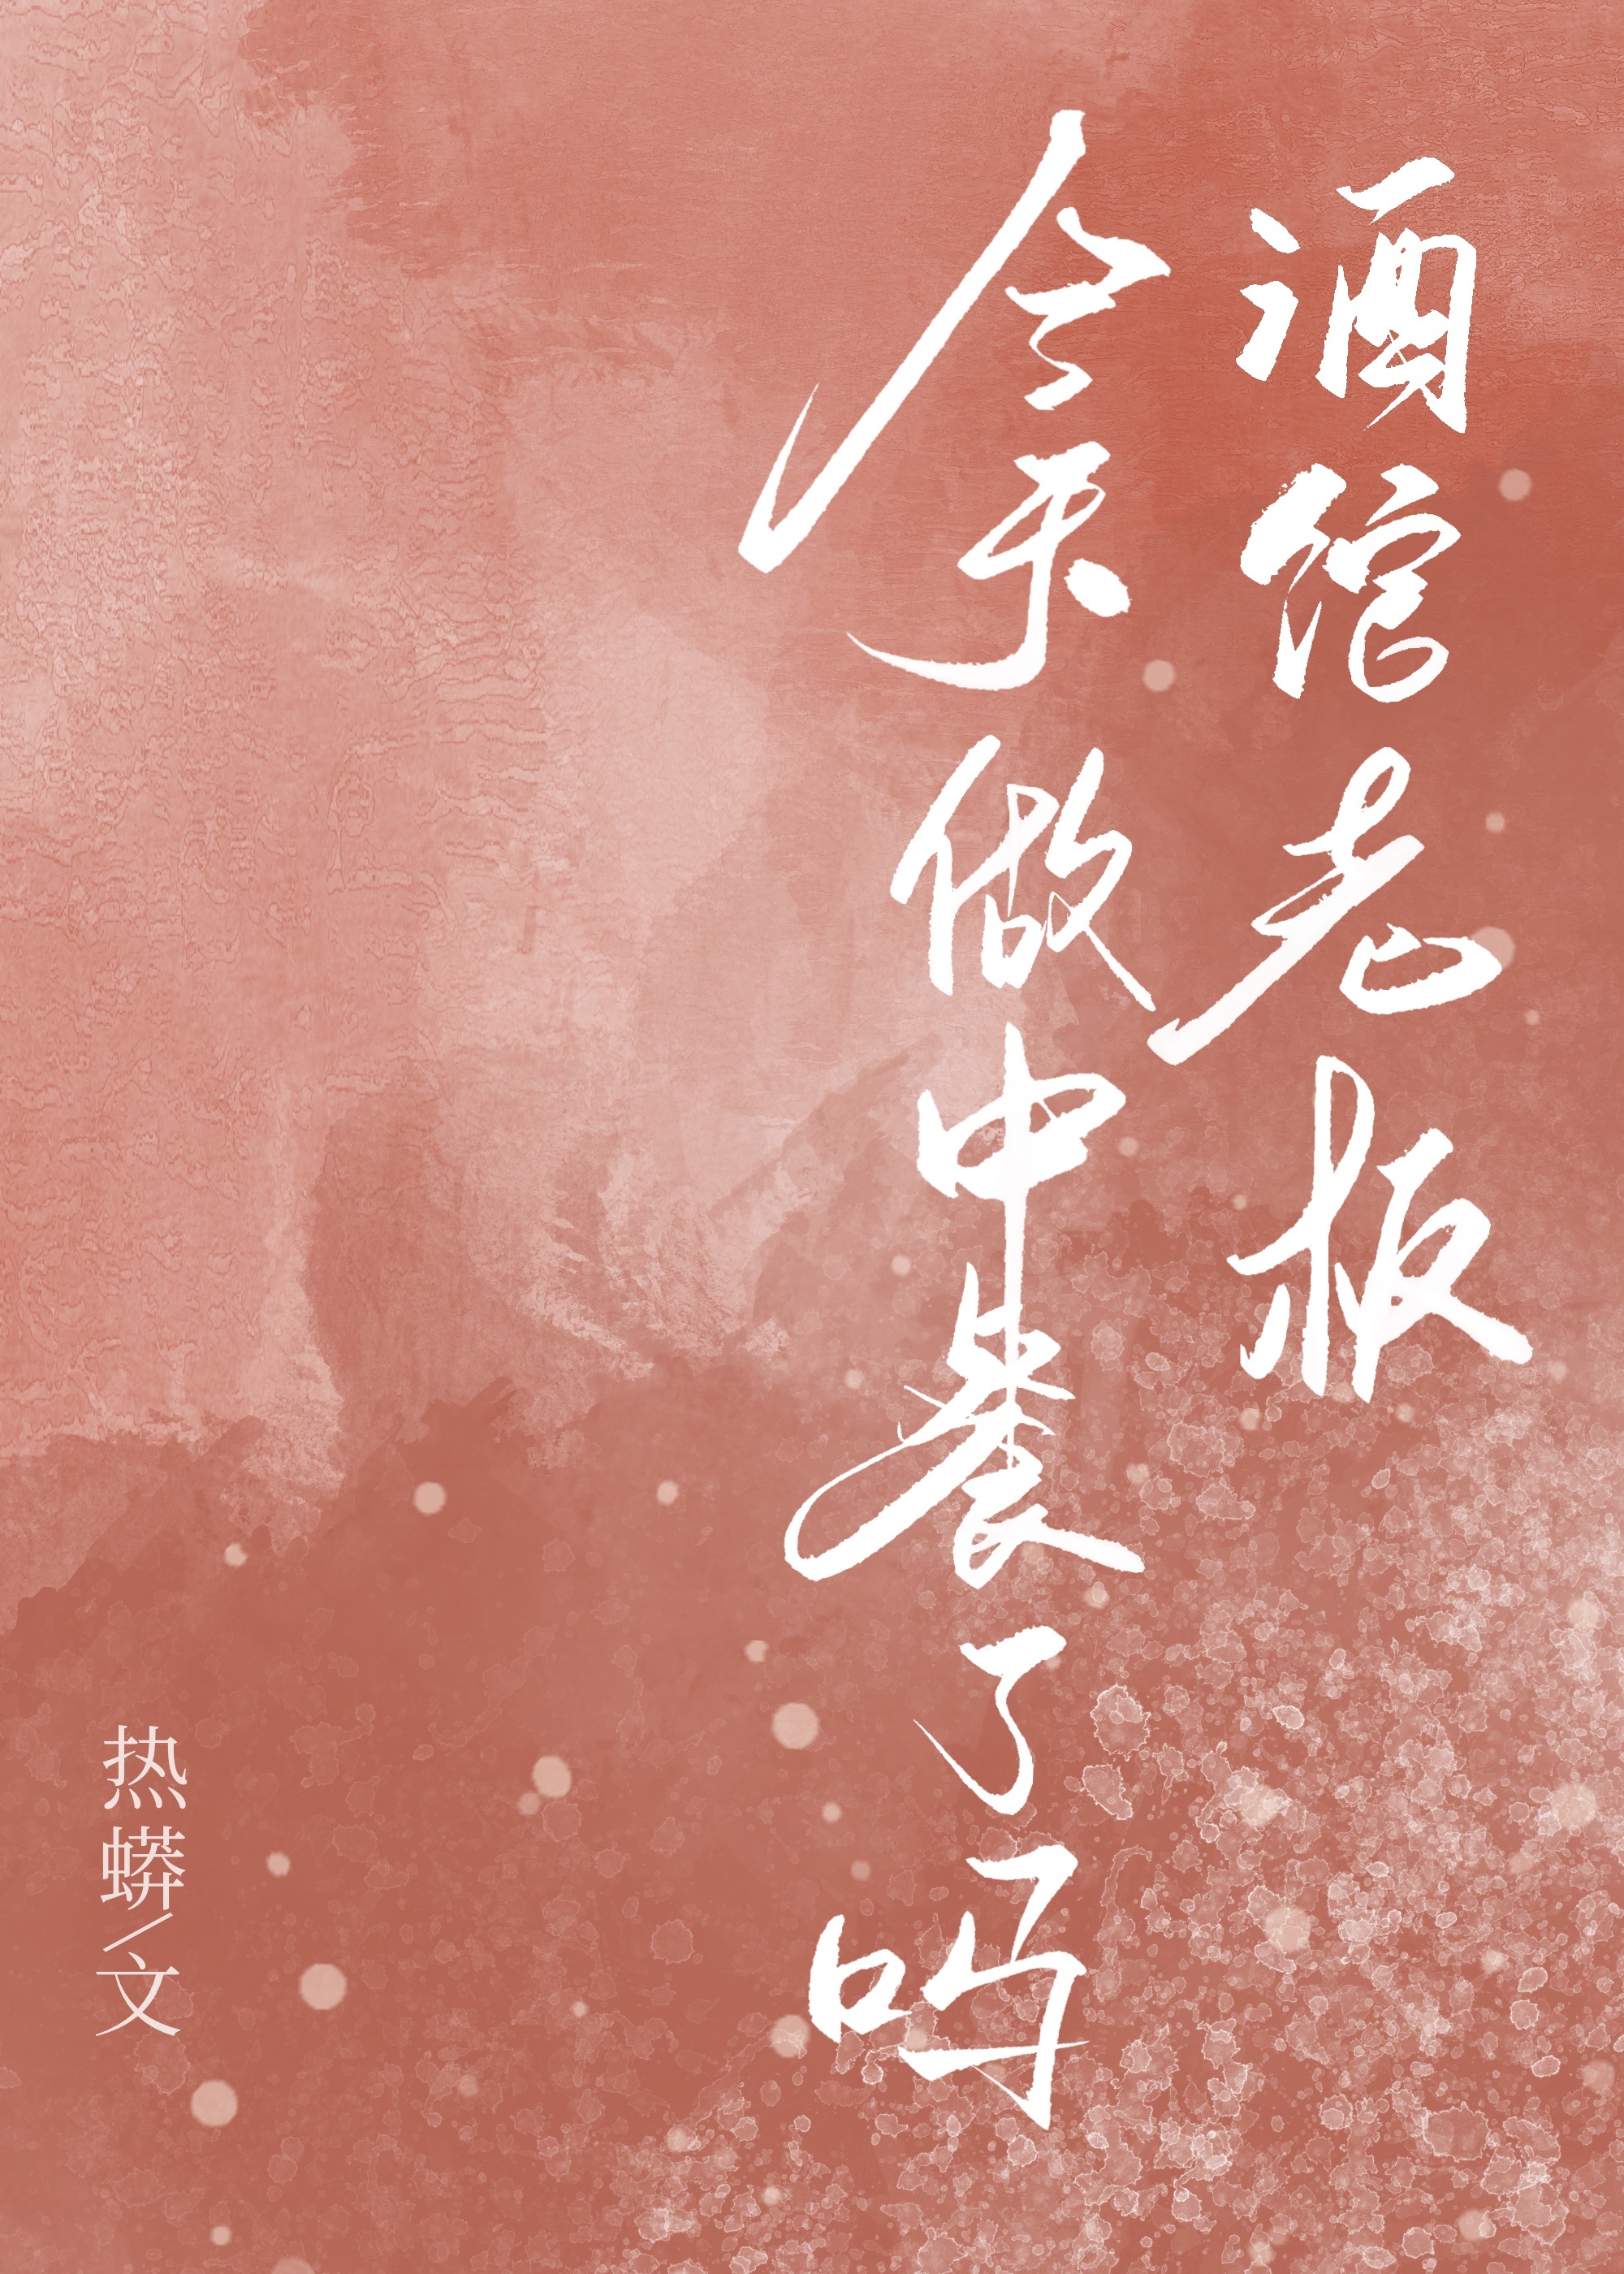 酒馆老板
今天做中餐了吗
热蟒/文